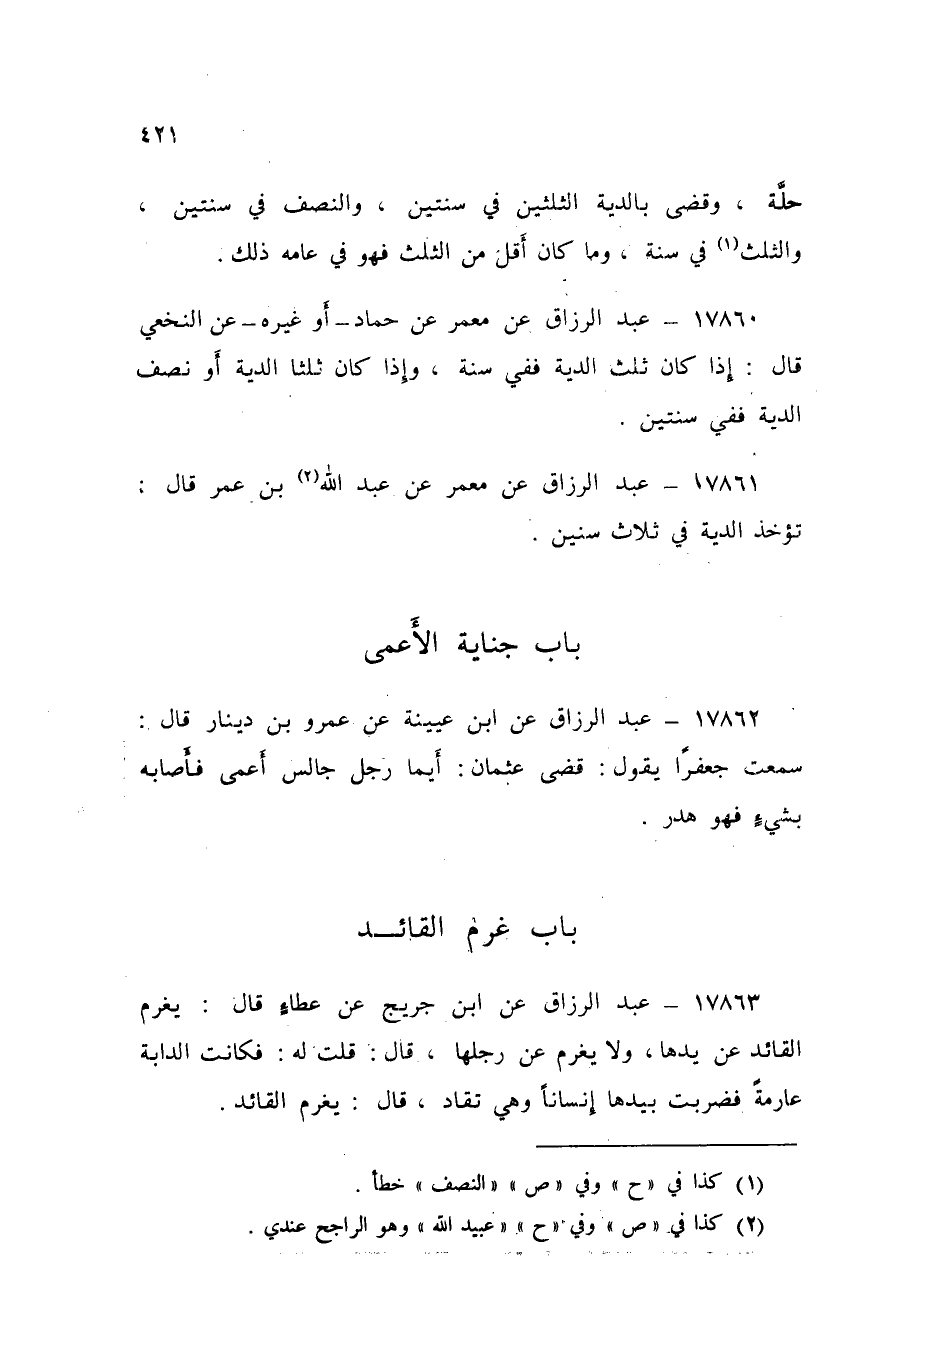 ٤٢١
حلَّة ، وقضى بالدية الثلثين في سنتين ، والنصف في سنتين ،
والثلث(١) في سنة ، وما كان أَقل من الثلث فهو في عامه ذلك .
١٧٨٦٠ – عبد الرزاق عن معمر عن حماد – أَو غيره – عن النخعي
قال : إِذا كان ثلث الدية ففي سنة ، وإِذا كان ثلثا الدية أَو نصف
الدية ففي سنتين .
١٧٨٦١ – عبد الرزاق عن معمر عن عبد الله(٢) بن عمر قال :
تؤخذ الدية في ثلاث سنين .
باب جناية الأَعمى
١٧٨٦٢ – عبد الرزاق عن ابن عيينة عن عمرو بن دينار قال :
سمعت جعفرًا يقول : قضى عثمان : أَيما رجل جالس أَعمى فأَصابه
بشيءٍ فهو هدر .
باب غرم القائـــد
١٧٨٦٣ – عبد الرزاق عن ابن جريج عن عطاءٍ قال : يغرم
القائد عن يدها ، ولا يغرم عن رجلها ، قال : قلت له : فكانت الدابة
عارمةً فضربت بيدها إِنساناً وهي تقاد ، قال : يغرم القائد .
(١) كذا في «ح» وفي «ص» «النصف» خطأ .
(٢) كذا في «ص» وفي «ح» «عبيد الله» وهو الراجح عندي .